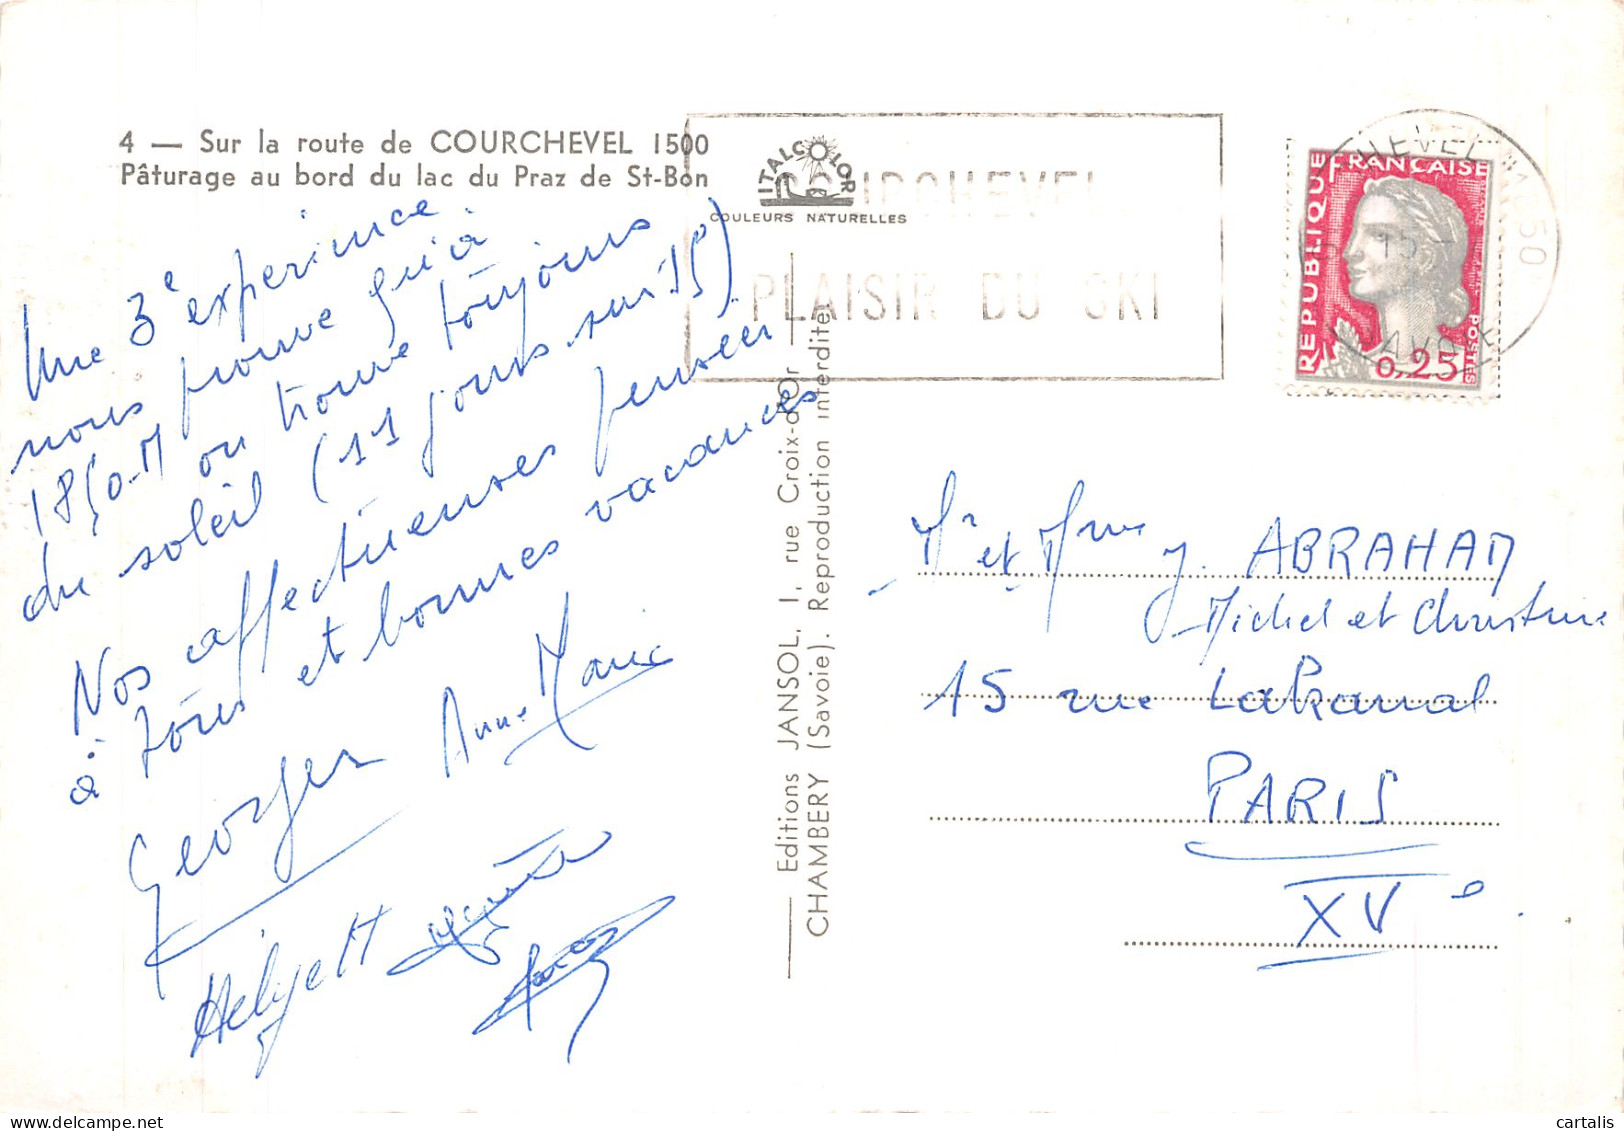 4 — Sur la route de COURCHEVEL 1500
Pâturage au bord du lac du Praz de St-Bon
ITALCOLOR
COULEURS NATURELLES
COURCHEVEL
PLAISIR DU SKI
RÉPUBLIQUE FRANÇAISE
POSTES
0,25
Une 3e expérience
nous prouve qu'à
1850-M on trouve toujours
du soleil (11 jours sur 15)
Nos affectueuses pensées
à tous et bonnes vacances
Georges Anne Marie
Hélyett
Editions JANSOL, 1, rue Croix-d'Or
CHAMBERY (Savoie). Reproduction interdite.
Mr et Mme J. ABRAHAM
Michel et Christine
15 rue Lakanal
PARIS
XVe.
cartalis